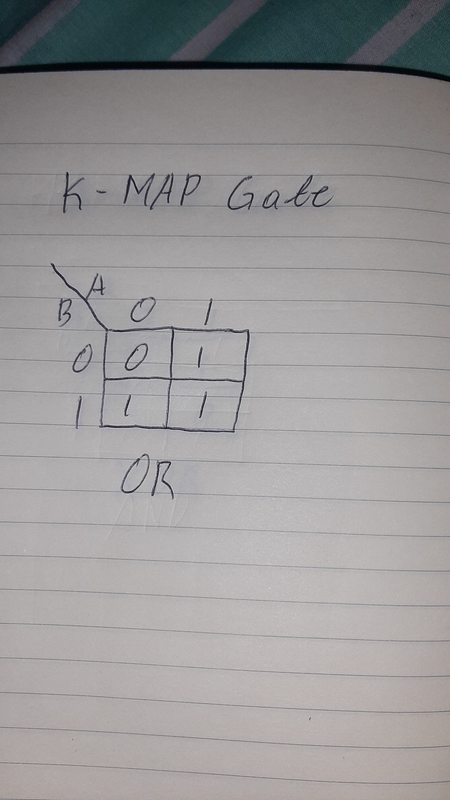 K-MAP Gate
A
B 0 1
0 0 1
1 1 1
OR